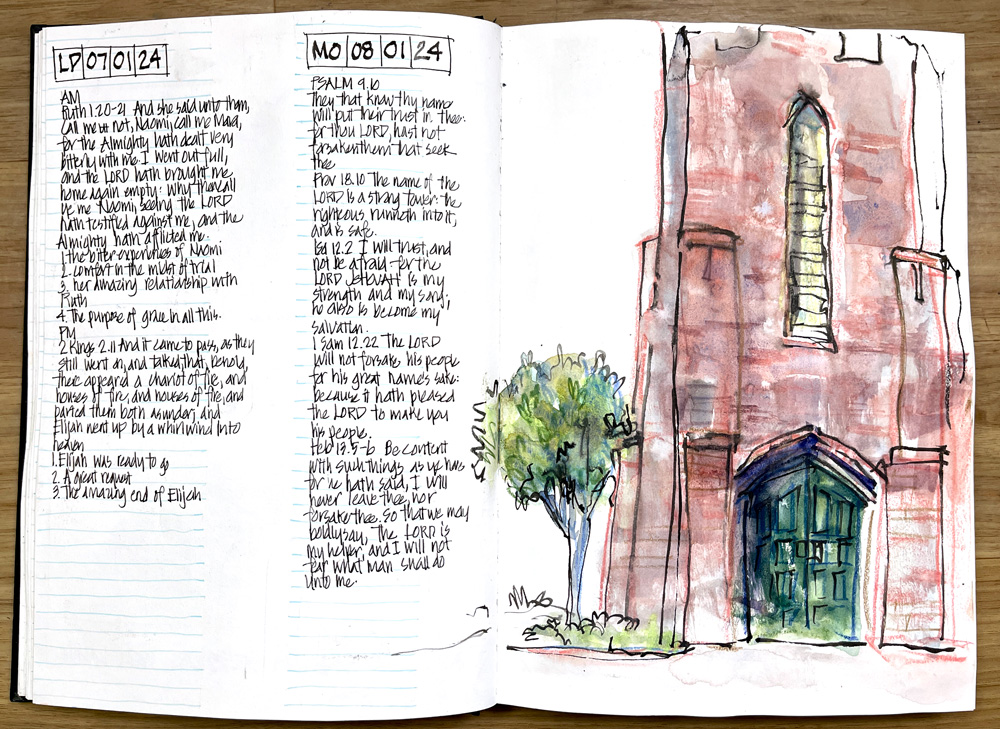 LD 07 01 24
AM
Ruth 1.20-21 And she said unto them,
Call me not, Naomi, call me Mara,
for the Almighty hath dealt very
bitterly with me. I went out full,
and the LORD hath brought me
home again empty: Why then call
ye me Naomi, seeing the LORD
hath testified against me, and the
Almighty hath afflicted me.
1. the bitter experiences of Naomi
2. comfort in the midst of trial
3. her amazing relationship with
Ruth
4. The purpose of grace in all this.
PM
2 Kings 2.11 And it came to pass, as they
still went on, and talked, that, behold,
there appeared a chariot of fire, and
horses of fire, and horses of fire, and
parted them both asunder; and
Elijah went up by a whirlwind into
heaven
1. Elijah was ready to go
2. A great request
3. The amazing end of Elijah
MO 08 01 24
PSALM 9.10
They that know thy name
will put their trust in thee:
for thou LORD, hast not
forsaken them that seek
thee
Prov 18.10 The name of the
LORD is a strong tower: the
righteous runneth into it,
and is safe.
Isa 12.2 I will trust, and
not be afraid: for the
LORD JEHOVAH is my
strength and my song;
he also is become my
salvation.
1 Sam 12.22 The LORD
will not forsake his people
for his great name's sake:
because it hath pleased
the LORD to make you
his people.
Heb 13.5-6 Be content
with such things as ye have
for he hath said, I will
never leave thee, nor
forsake thee. So that we may
boldly say, The LORD is
my helper, and I will not
fear what man shall do
unto me.